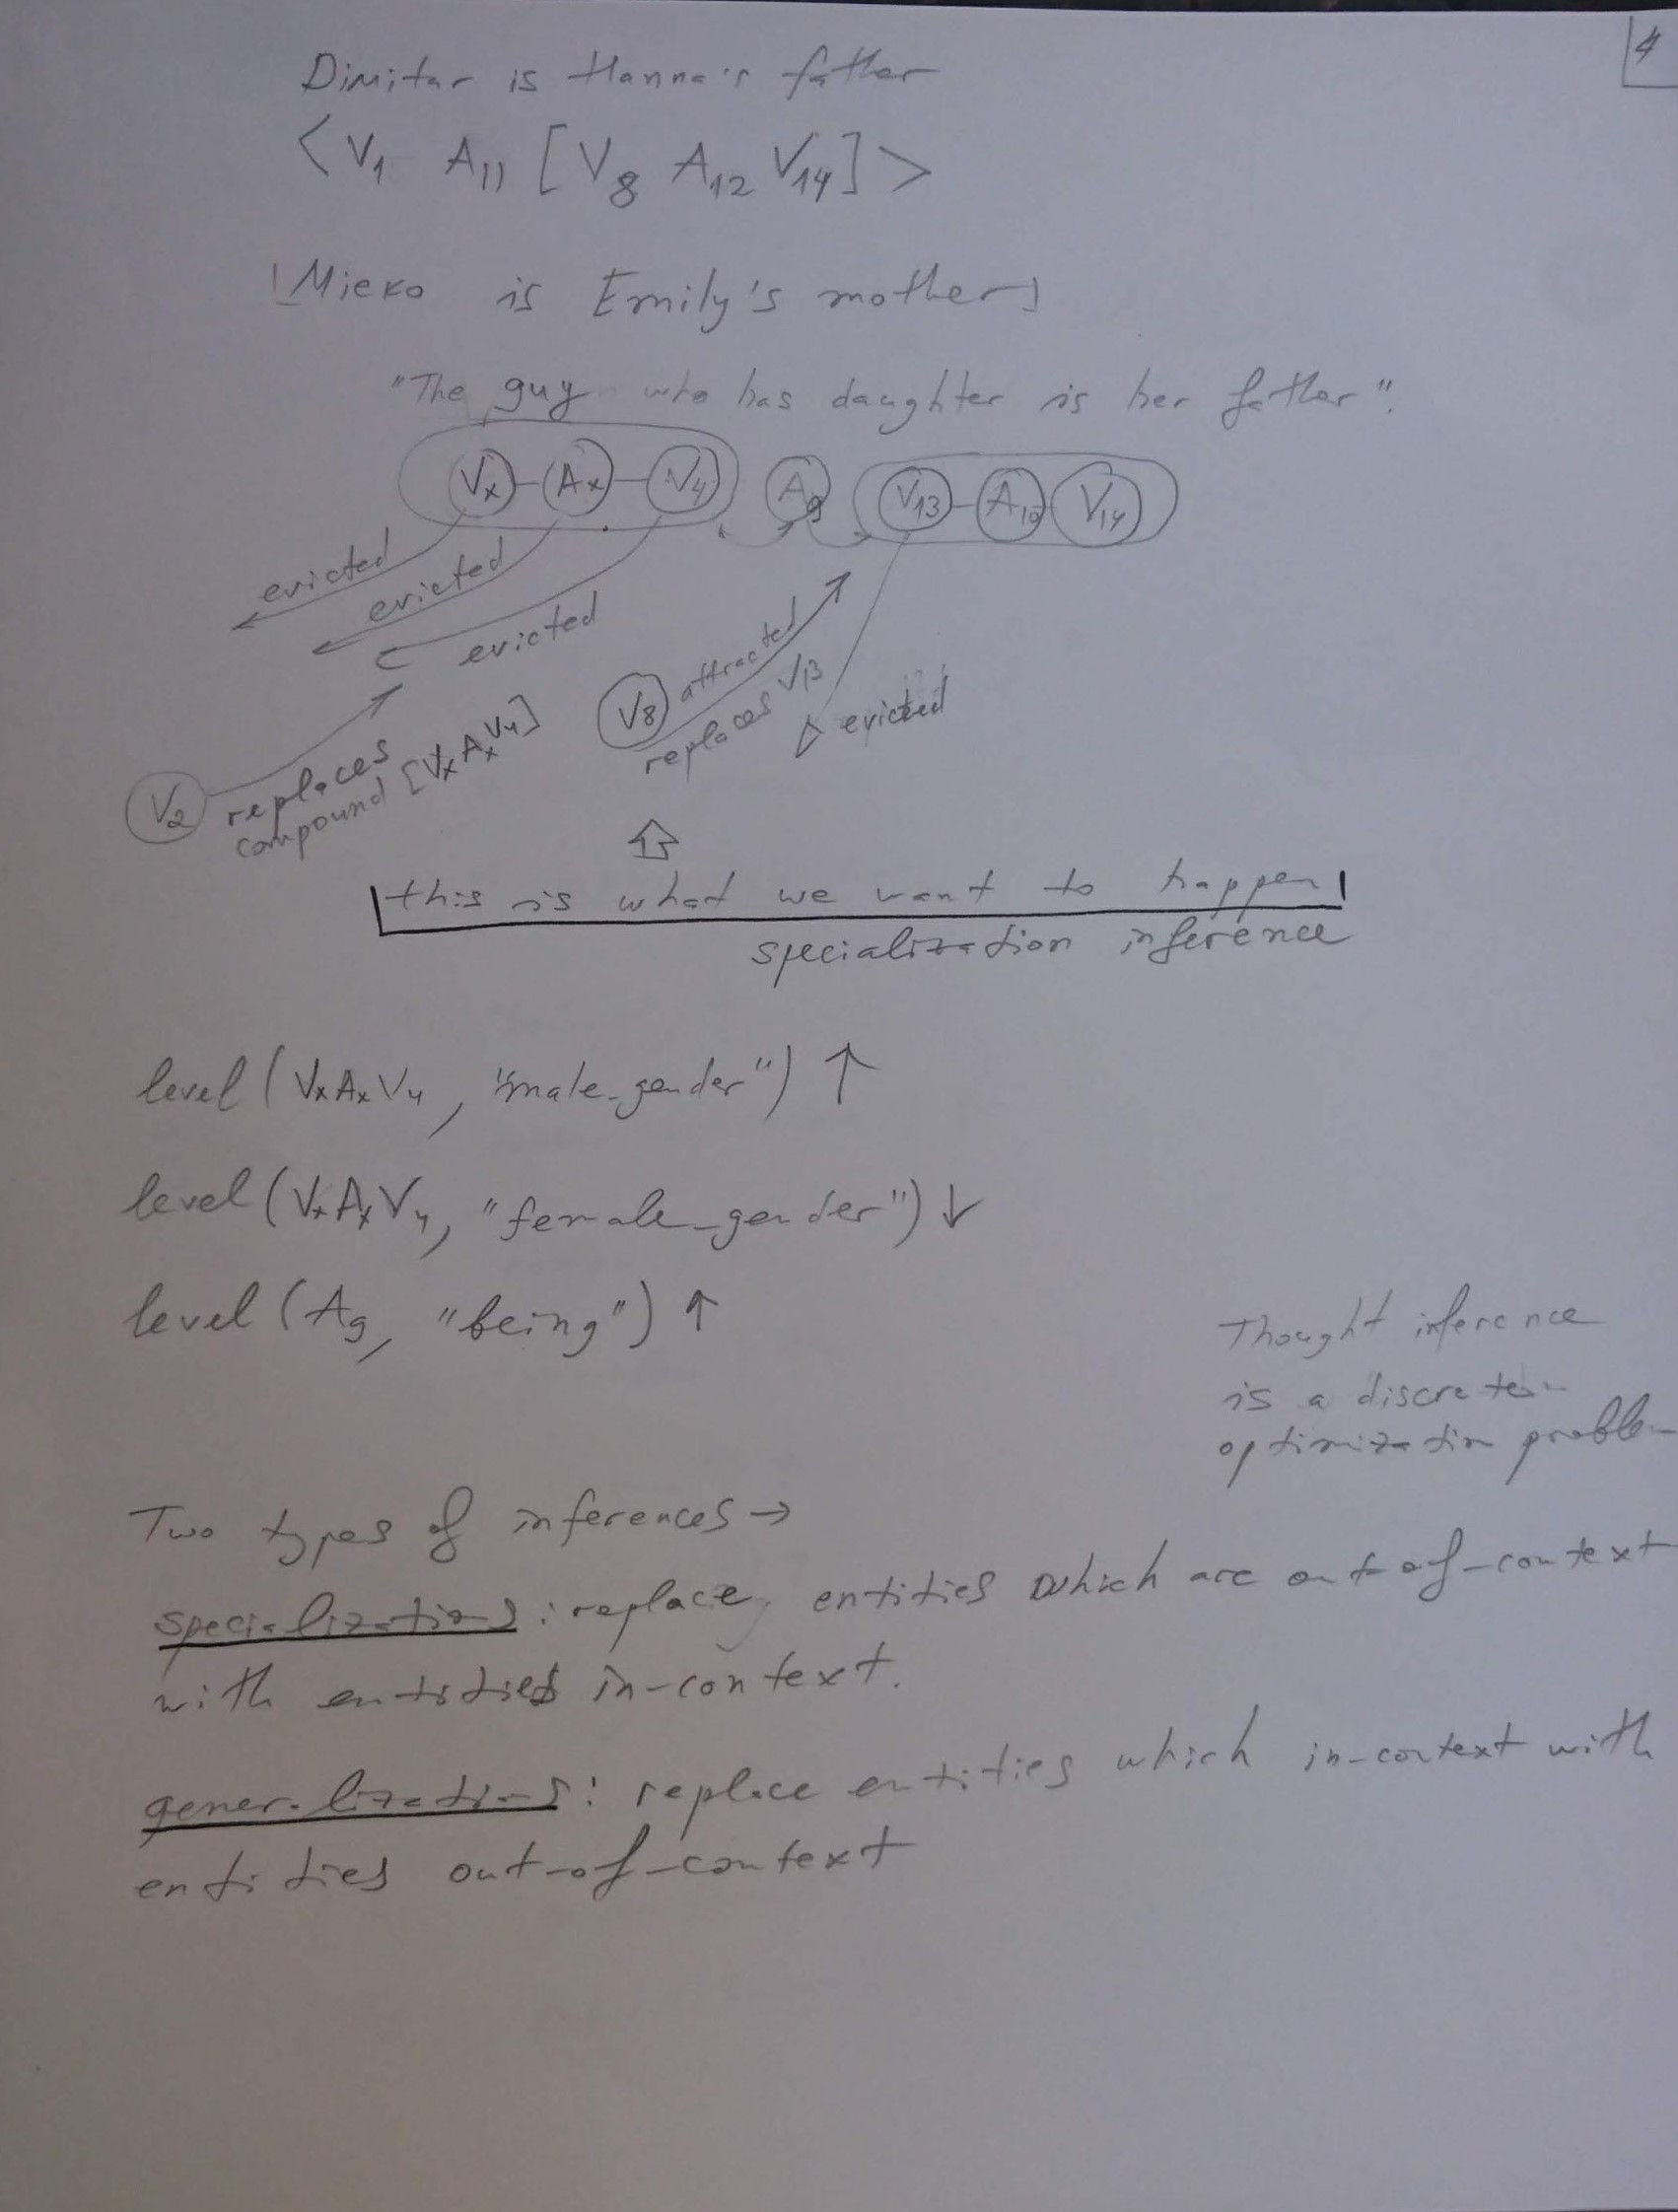 4
Dimitar is Hanna's father
< V1 A11 [V8 A12 V14] >
[Mieko is Emily's mother]
"The guy who has daughter is her father".
Vx - Ax - V4 A9 V13 - A10 V14
evicted
evicted
evicted
V8 attracted
replaces V13
evicted
V2 replaces
compound [Vx Ax V4]
this is what we want to happen
specialization inference
level (Vx Ax V4, "male_gender") ↑
level (Vx Ax V4, "female_gender") ↓
level (A9, "being") ↑
Thought inference
is a discrete
optimization problem
Two types of inferences →
specializations: replace entities which are out-of-context
with entities in-context.
generalizations: replace entities which in-context with
entities out-of-context